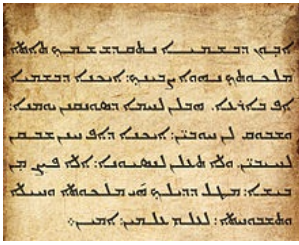 ܐܒܘܢ ܕܒܫܡܝܐ ܢܬܩܕܫ ܫܡܟ ܬܐܬܐ
ܡܠܟܘܬܟ ܢܗܘܐ ܨܒܝܢܟ: ܐܝܟܢܐ ܕܒܫܡܝܐ
ܐܦ ܒܐܪܥܐ. ܗܒܠܢ ܠܚܡܐ ܕܣܘܢܩܢܢ ܝܘܡܢܐ:
ܘܫܒܘܩ ܠܢ ܚܘܒܝ̈ܢ: ܐܝܟܢܐ ܕܐܦ ܚܢܢ ܫܒܩܢ
ܠܚܝܒܝ̈ܢ. ܘܠܐ ܬܥܠܢ ܠܢܣܝܘܢܐ: ܐܠܐ ܦܨܢ ܡܢ
ܒܝܫܐ: ܡܛܠ ܕܕܝܠܟ ܗ̄ܝ ܡܠܟܘܬܐ ܘܚܝܠܐ
ܘܬܫܒܘܚܬܐ: ܠܥܠܡ ܥܠܡܝܢ: ܐܡܝܢ܀